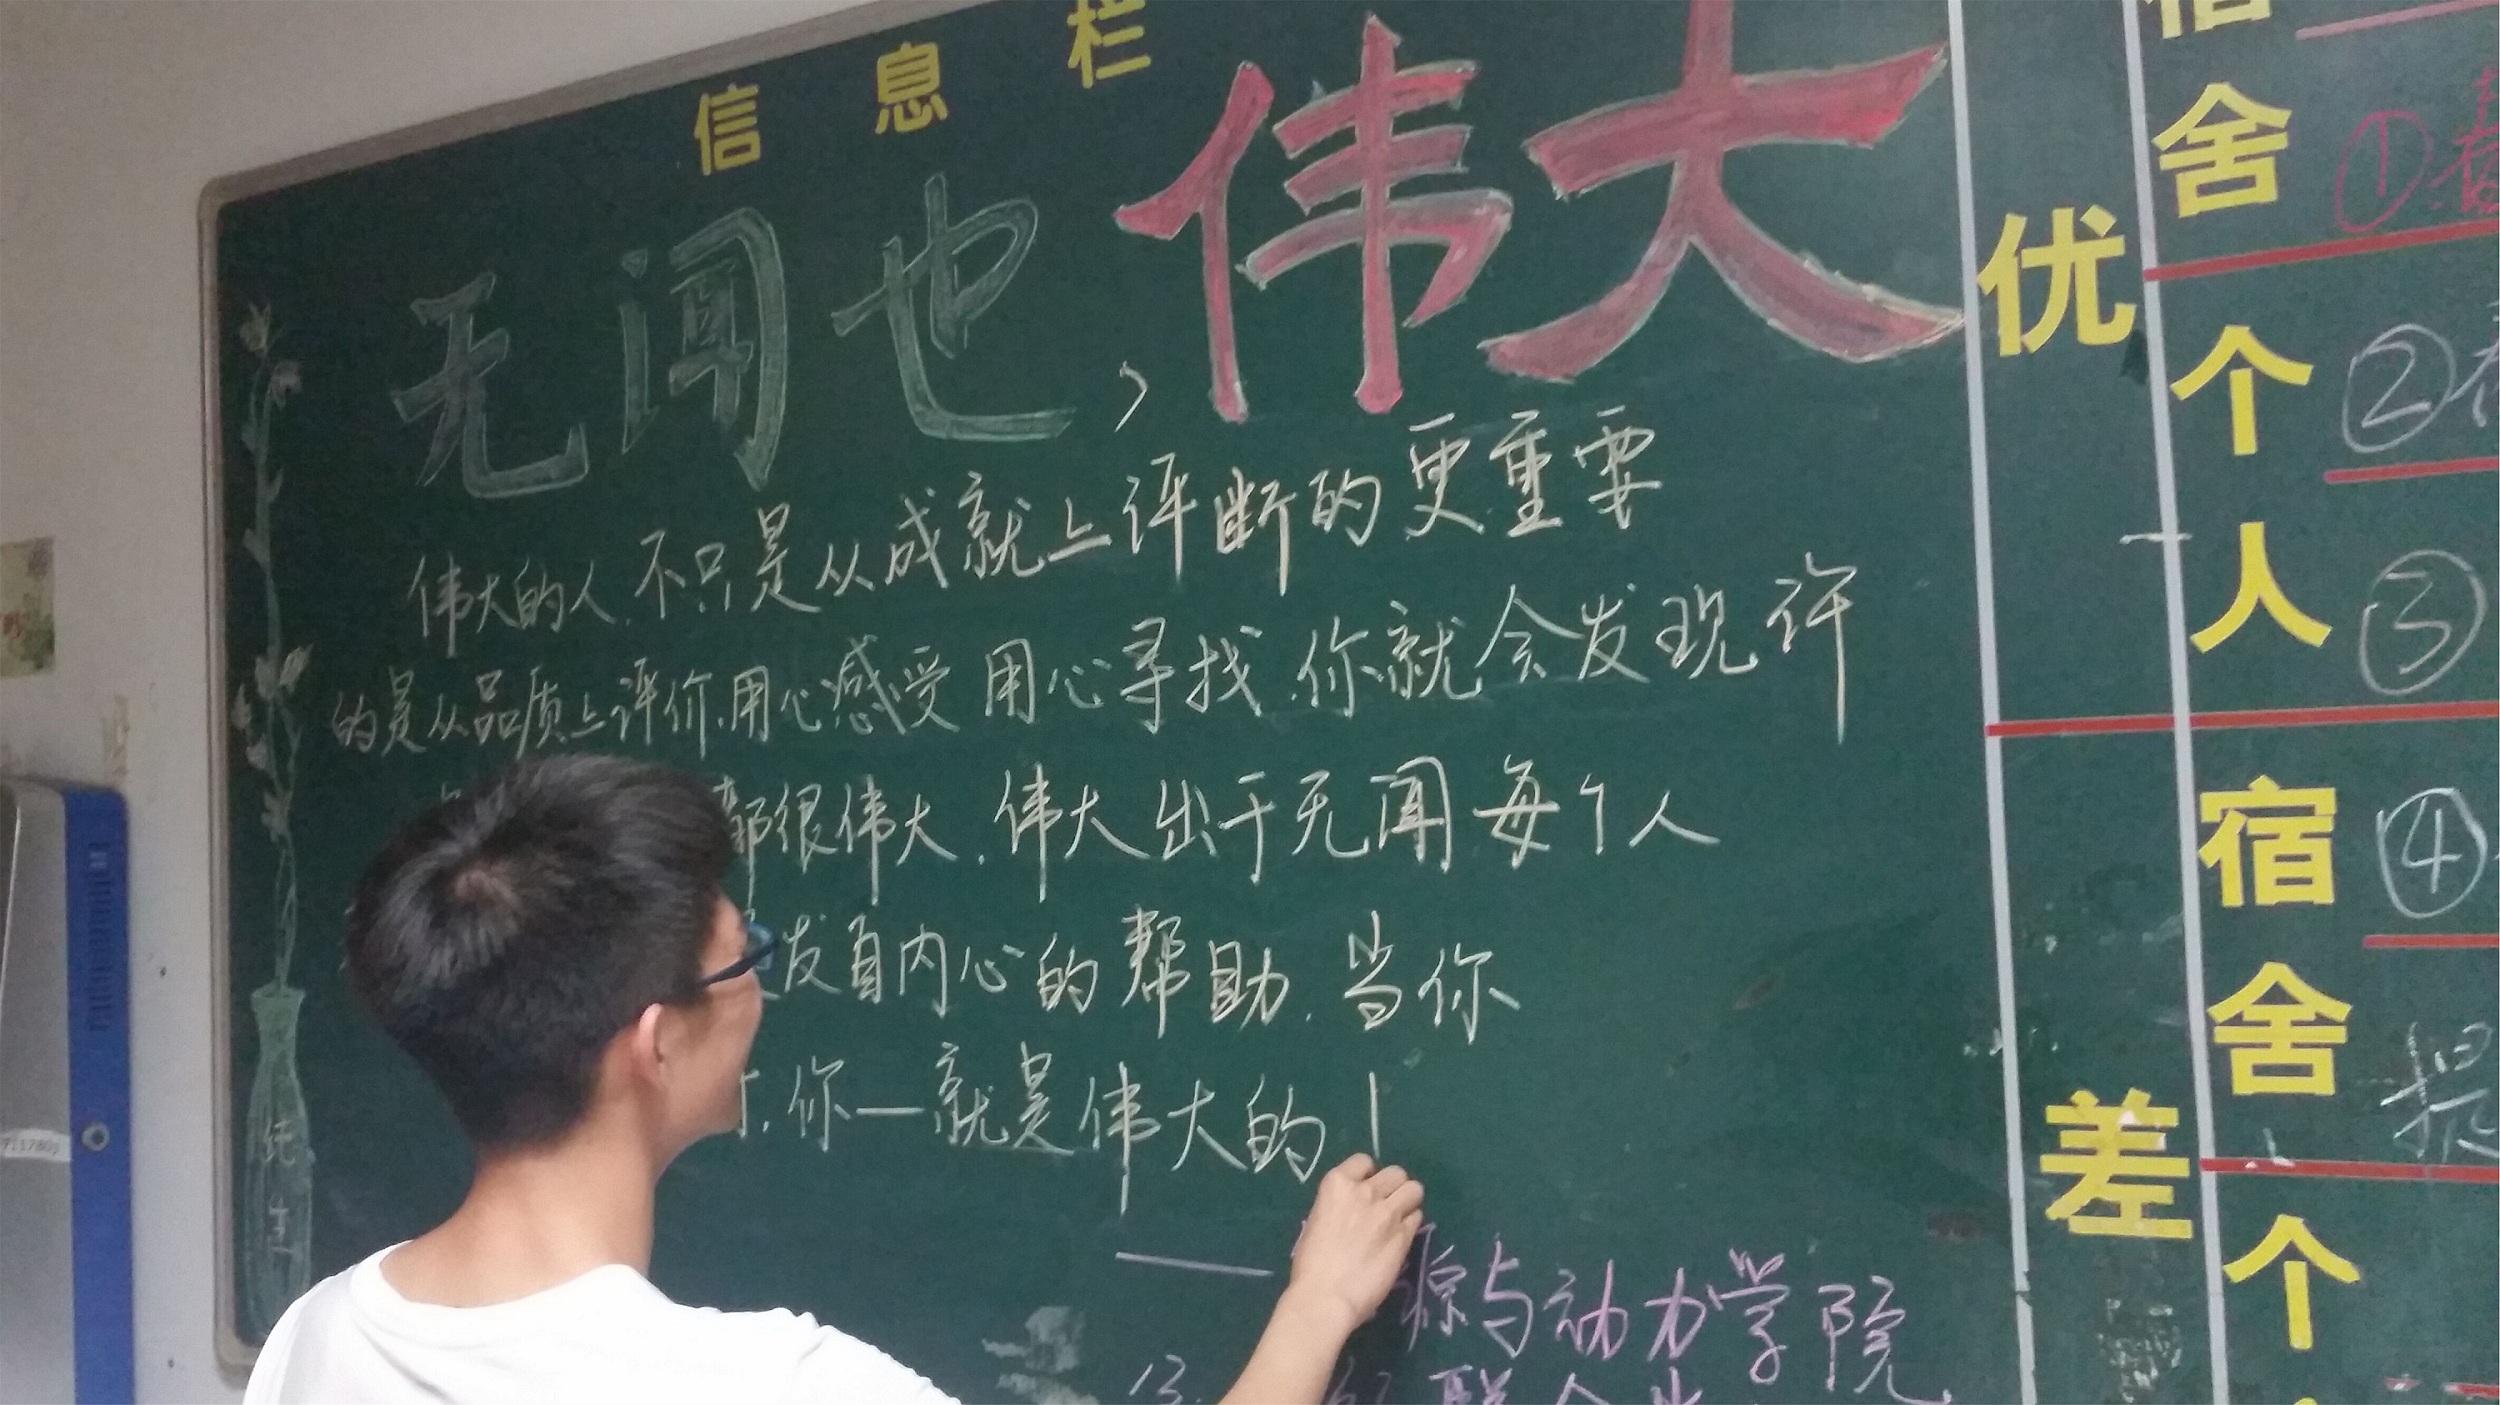 信息栏
无闻也，伟大
伟大的人.不只是从成就上评断的更重要
的是从品质上评价.用心感受 用心寻找.你就会发现许
都很伟大.伟大出于无闻 每个人
发自内心的帮助.当你
.你一就是伟大的
源与动力学院
13.
优
舍
①
个
②
人
③
差
宿
④
舍
提
个
纯